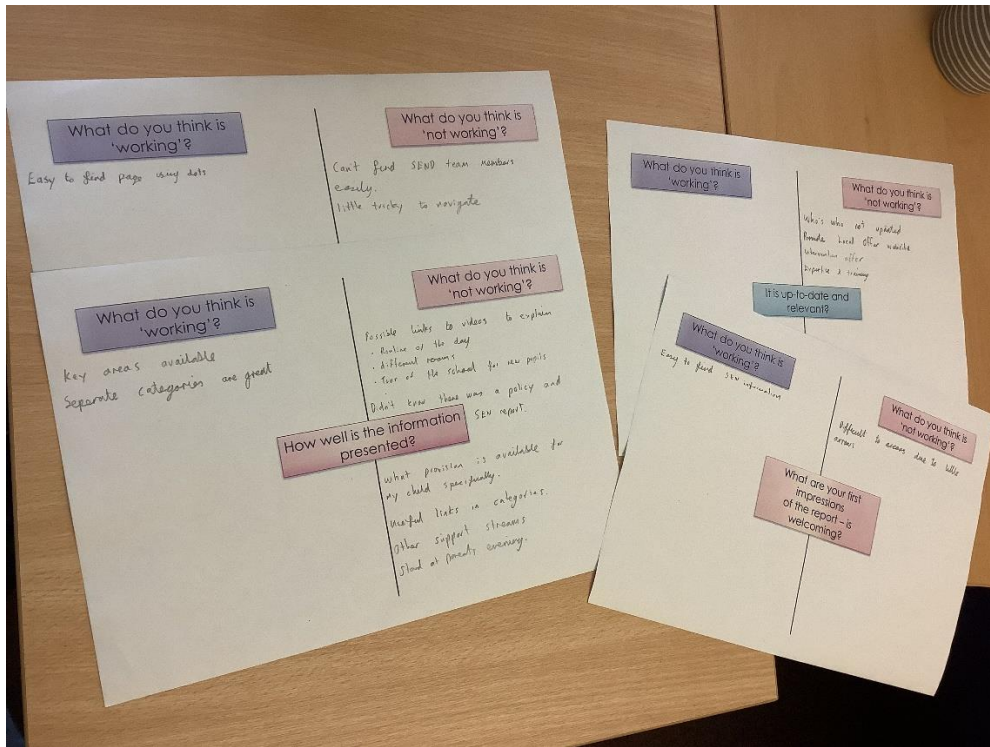 What do you think is
'working'?
Easy to find page using dots
What do you think is
'not working'?
Can't find SEND team members
easily.
little tricky to navigate
What do you think is
'working'?
Key areas available
Separate categories are great
What do you think is
'not working'?
Possible links to videos to explain
· Routine of the day
· different rooms
· Tour of the school for new pupils
Didn't know there was a policy and
SEN report.
How well is the information
presented?
What provision is available for
my child specifically.
Useful links in categories.
Other support streams
Stand at parents evening.
What do you think is
'working'?
What do you think is
'not working'?
Who's who not updated
Provide Local Offer website
Intervention offer
Expertise & training
It is up-to-date and
relevant?
What do you think is
'working'?
Easy to find SEN information
What do you think is
'not working'?
Difficult to access due to
arrows
What are your first
impressions
of the report – is
welcoming?